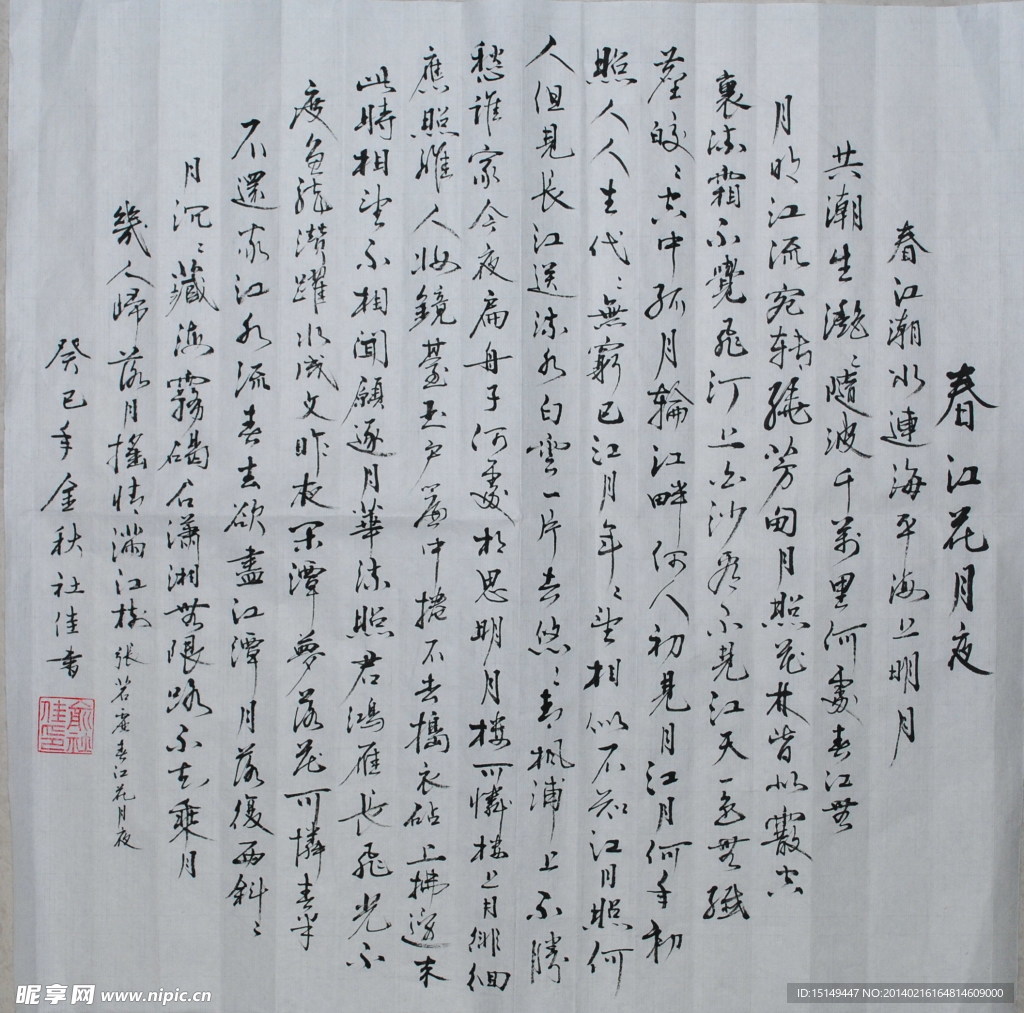 春江花月夜
春江潮水連海平海上明月
共潮生灔〻隨波千萬里何處春江無
月明江流宛转繞芳甸月照花林皆似霰空
裏流霜不覺飛汀上白沙看不見江天一色無纖
塵皎〻空中孤月輪江畔何人初見月江月何年初
照人人生代〻無窮已江月年〻望相似不知江月照何
人但見長江送流水白雲一片去悠〻青楓浦上不勝
愁誰家今夜扁舟子何處相思明月樓可憐樓上月徘徊
應照離人妝鏡臺玉户簾中捲不去擣衣砧上拂還来
此時相望不相聞願逐月華流照君鴻雁長飛光不
度魚龍潛躍水成文昨夜閑潭夢落花可憐春半
不還家江水流春去欲盡江潭月落復西斜〻
月沉〻藏海霧碣石瀟湘無限路不知乘月
幾人歸落月摇情满江樹 張若虚春江花月夜
癸巳年金秋社佳書
俞社佳印
昵享网 www.nipic.cn
ID:15149447 NO:20140216164814609000